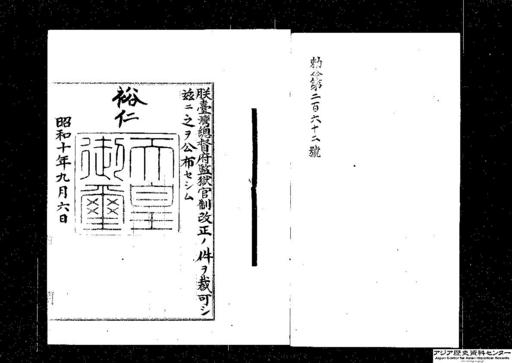 勅令第二百六十二號
朕臺灣總督府監獄官制改正ノ件ヲ裁可シ
玆ニ之ヲ公布セシム
裕仁
天皇御璽
昭和十年九月六日
アジア歴史資料センター
Japan Center for Asian Historical Records